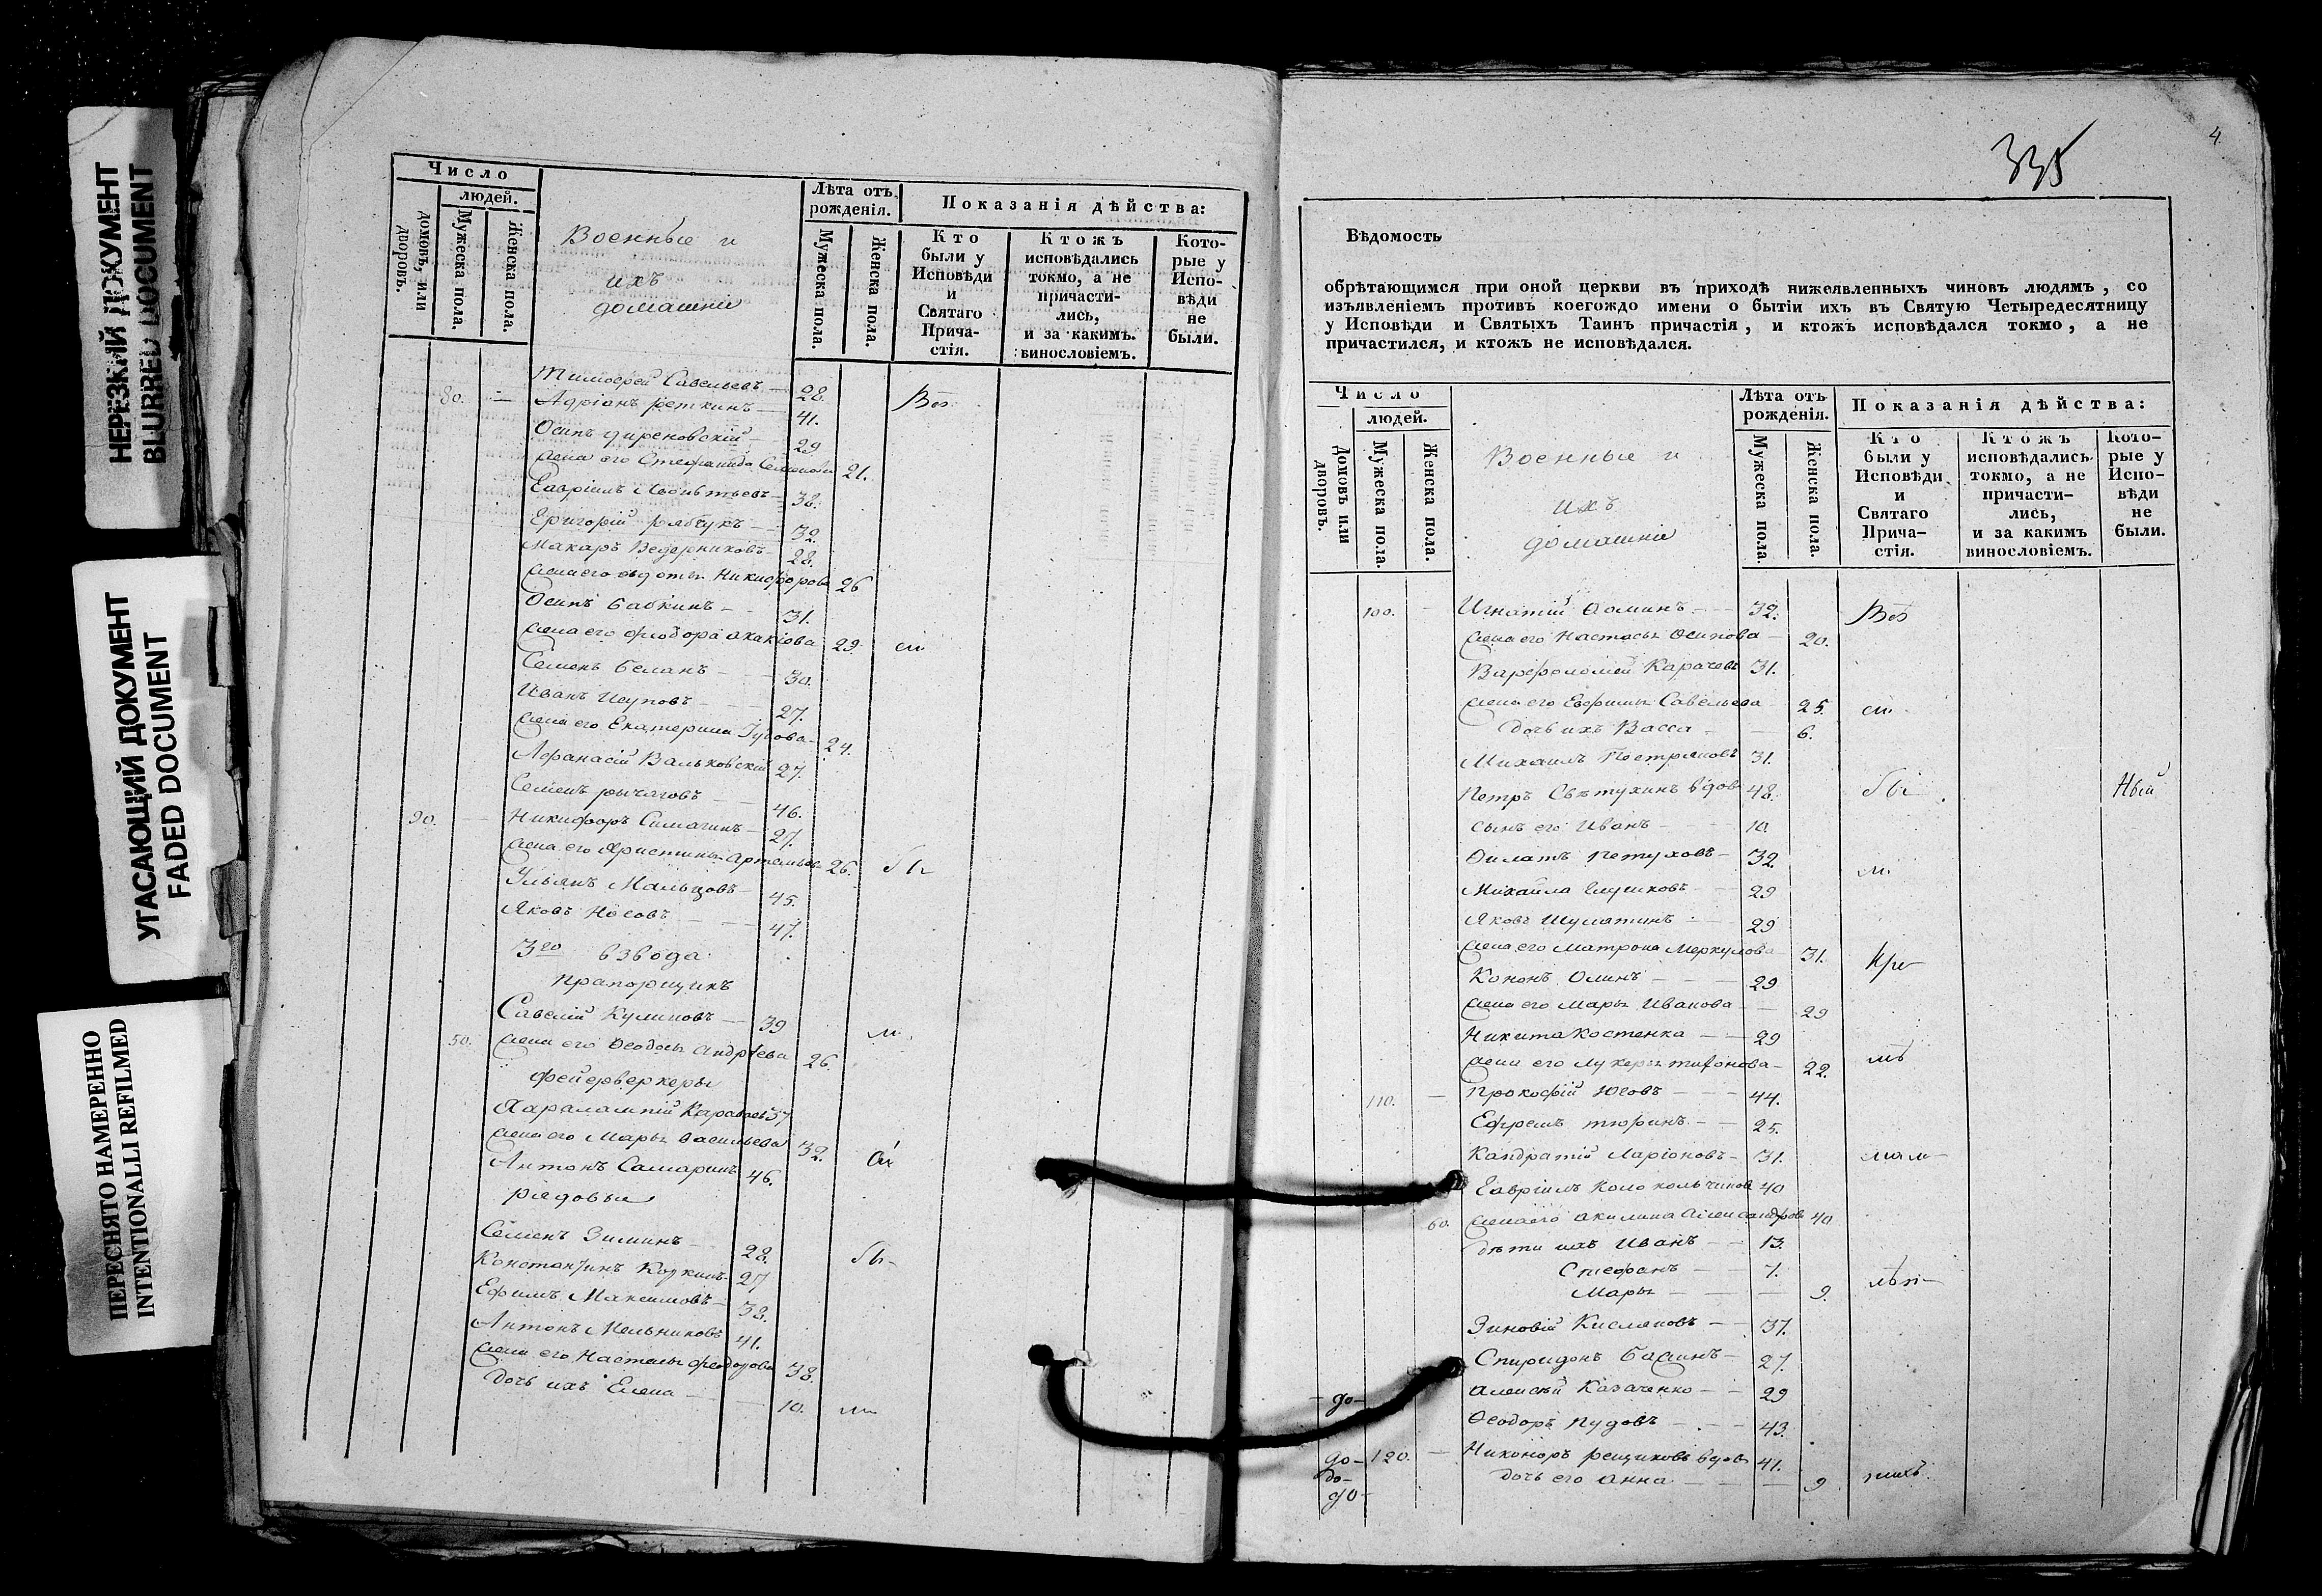 НЕРЕЗКИЙ ДОКУМЕНТ
BLURRED DOCUMENT
УГАСАЮЩИЙ ДОКУМЕНТ
FADED DOCUMENT
ПЕРЕСНЯТО НАМЕРЕННО
INTENTIONALLI REFILMED
Число
людей.
домовъ, или дворовъ.
Мужеска пола.
Женска пола.
Военные и
ихъ
домашніе
Лѣта отъ рожденія.
Мужеска пола.
Женска пола.
Показанія дѣйства:
Кто были у Исповѣди и Святаго Прича-стія.
Ктожъ исповѣдались токмо, а не причасти-лись, и за какимъ. винословіемъ.
Кото-рые у Испо-вѣди не были.
Тимоѳей Савельевъ 28.
80. Адріанъ Реткинъ 41. Всѣ
Осипъ 29
жена его Стефанида 21.
Гавріилъ Леонтьевъ 38.
Григорій Рябчукъ 32.
Макаръ Ведерниковъ 28.
жена его Ѳедотья Никифорова 26
Осипъ Бабкинъ 31.
жена его Ѳеодора Акакіова 29. сіи
Семенъ Беланъ 30.
Иванъ Иеуповъ 27.
жена его Екатерина 24.
Афанасій Вальковскій 27.
Семенъ Рычаговъ 46.
90. Никифоръ Симагинъ 27.
жена его Христинья Артемьева 26. бы
Ульянъ Мальцовъ 45.
Яковъ Носовъ 47.
3го взвода
прапорщикъ
Савелій Куликовъ 39 ли
50. жена его Ѳеодосья Андрѣева 26.
фейерверкеры
Харалампій Караваевъ 37
жена его Марья Васильева 32. ои
Антонъ Самаринъ 46.
рядовые
Семенъ Зиминъ 28. бы
Константинъ Козкинъ 27
Ефимъ Максимовъ 38.
Антонъ Мельниковъ 41.
жена его Настасья Ѳеодорова 38.
дочь ихъ Елена 10.
335
4.
Вѣдомость
обрѣтающимся при оной церкви въ приходѣ нижеявленныхъ чиновъ людямъ, со
изъявленіемъ противъ коегождо имени о бытіи ихъ въ Святую Четыредесятницу
у Исповѣди и Святыхъ Таинъ причастія, и ктожъ исповѣдался токмо, а не
причастился, и ктожъ не исповѣдался.
Число
людей.
Домовъ или дворовъ.
Мужеска пола.
Женска пола.
Военные и
ихъ
домашніе
Лѣта отъ рожденія.
Мужеска пола.
Женска пола.
Показанія дѣйства:
Кто были у Исповѣди и Святаго Прича-стія.
Ктожъ исповѣдались токмо, а не причасти-лись, и за какимъ винословіемъ.
Кото-рые у Испо-вѣди не были.
100. Игнатій Ѳоминъ 32. Всѣ
жена его Настасья Осипова 20.
Варфоломей Карачовъ 31.
жена его Евфимья Савельева 25. сіи
дочь ихъ Васса 6.
Михаилъ Пестряковъ 31.
Петръ Свѣтухинъ вдов 48. бы
сынъ его Иванъ 10
Филатъ Петуховъ 32 ли
Михайла Глушковъ 29
Яковъ Шулятинъ 29
жена его Матрона Меркулова 31. при
Кононъ Олинъ 29
жена его Марья Иванова 29
Никита Костенка 29
жена его Лукерья Тихонова 22.
110. Прокофій Юсовъ 44.
Ефремъ Тюринъ 25.
Кандратій Ларіоновъ 31.
Гавріилъ Колокольчиков 40
60. жена его Акилина Александров 40
дѣти ихъ Иванъ 13.
Стефанъ 7.
Марья 9.
Зиновій Кисляковъ 37.
Спиридонъ Башинъ 27.
до Алексѣй Казаченко 29
Ѳеодоръ Пудовъ 43.
до 120. Никоноръ Рещиковъ вдов 41.
до дочь его Анна 9
до